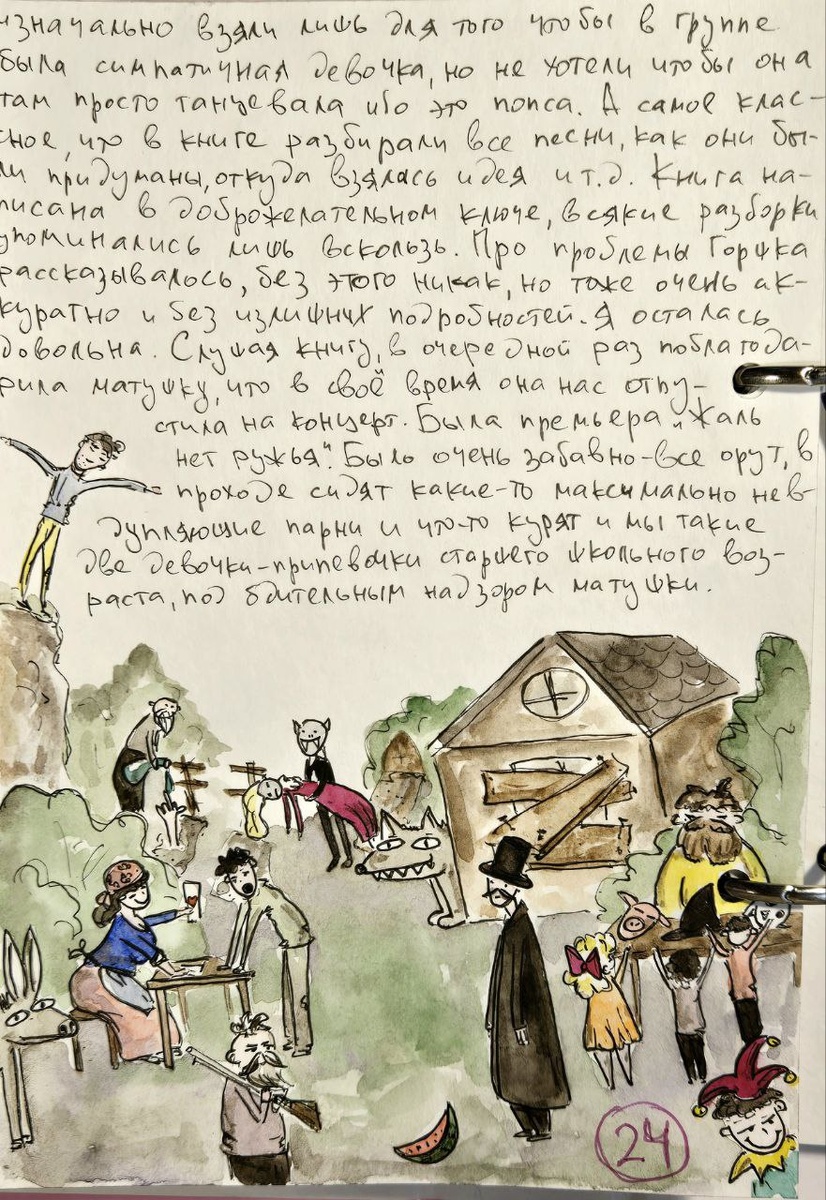 изначально взяли лишь для того чтобы в группе
была симпатичная девочка, но не хотели чтобы она
там просто танцевала ибо это попса. А самое клас-
сное, что в книге разбирали все песни, как они бы-
ли придуманы, откуда взялась идея и т.д. Книга на-
писана в доброжелательном ключе, всякие разборки
упоминались лишь вскользь. Про проблемы Горшка
рассказывалось, без этого никак, но тоже очень ак-
куратно и без излишних подробностей. Я осталась
довольна. Слушая книгу, в очередной раз поблагода-
рила матушку, что в своё время она нас отпу-
стила на концерт. Была премьера „Жаль
нет ружья". Было очень забавно-все орут, в
проходе сидят какие-то максимально нев-
дупляющие парни и что-то курят и мы такие
две девочки-припевочки старшего школьного воз-
раста, под бдительным надзором матушки.
24